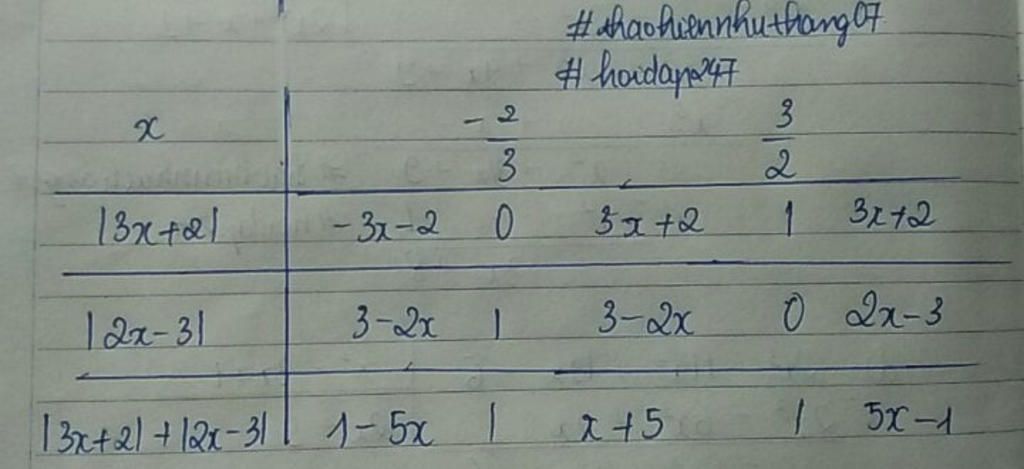 #thaohiennhuthang07
#hoidap247
x -2/3 3/2
|3x+2| -3x-2 0 3x+2 | 3x+2
|2x-3| 3-2x | 3-2x 0 2x-3
|3x+2|+|2x-3| 1-5x | x+5 | 5x-1